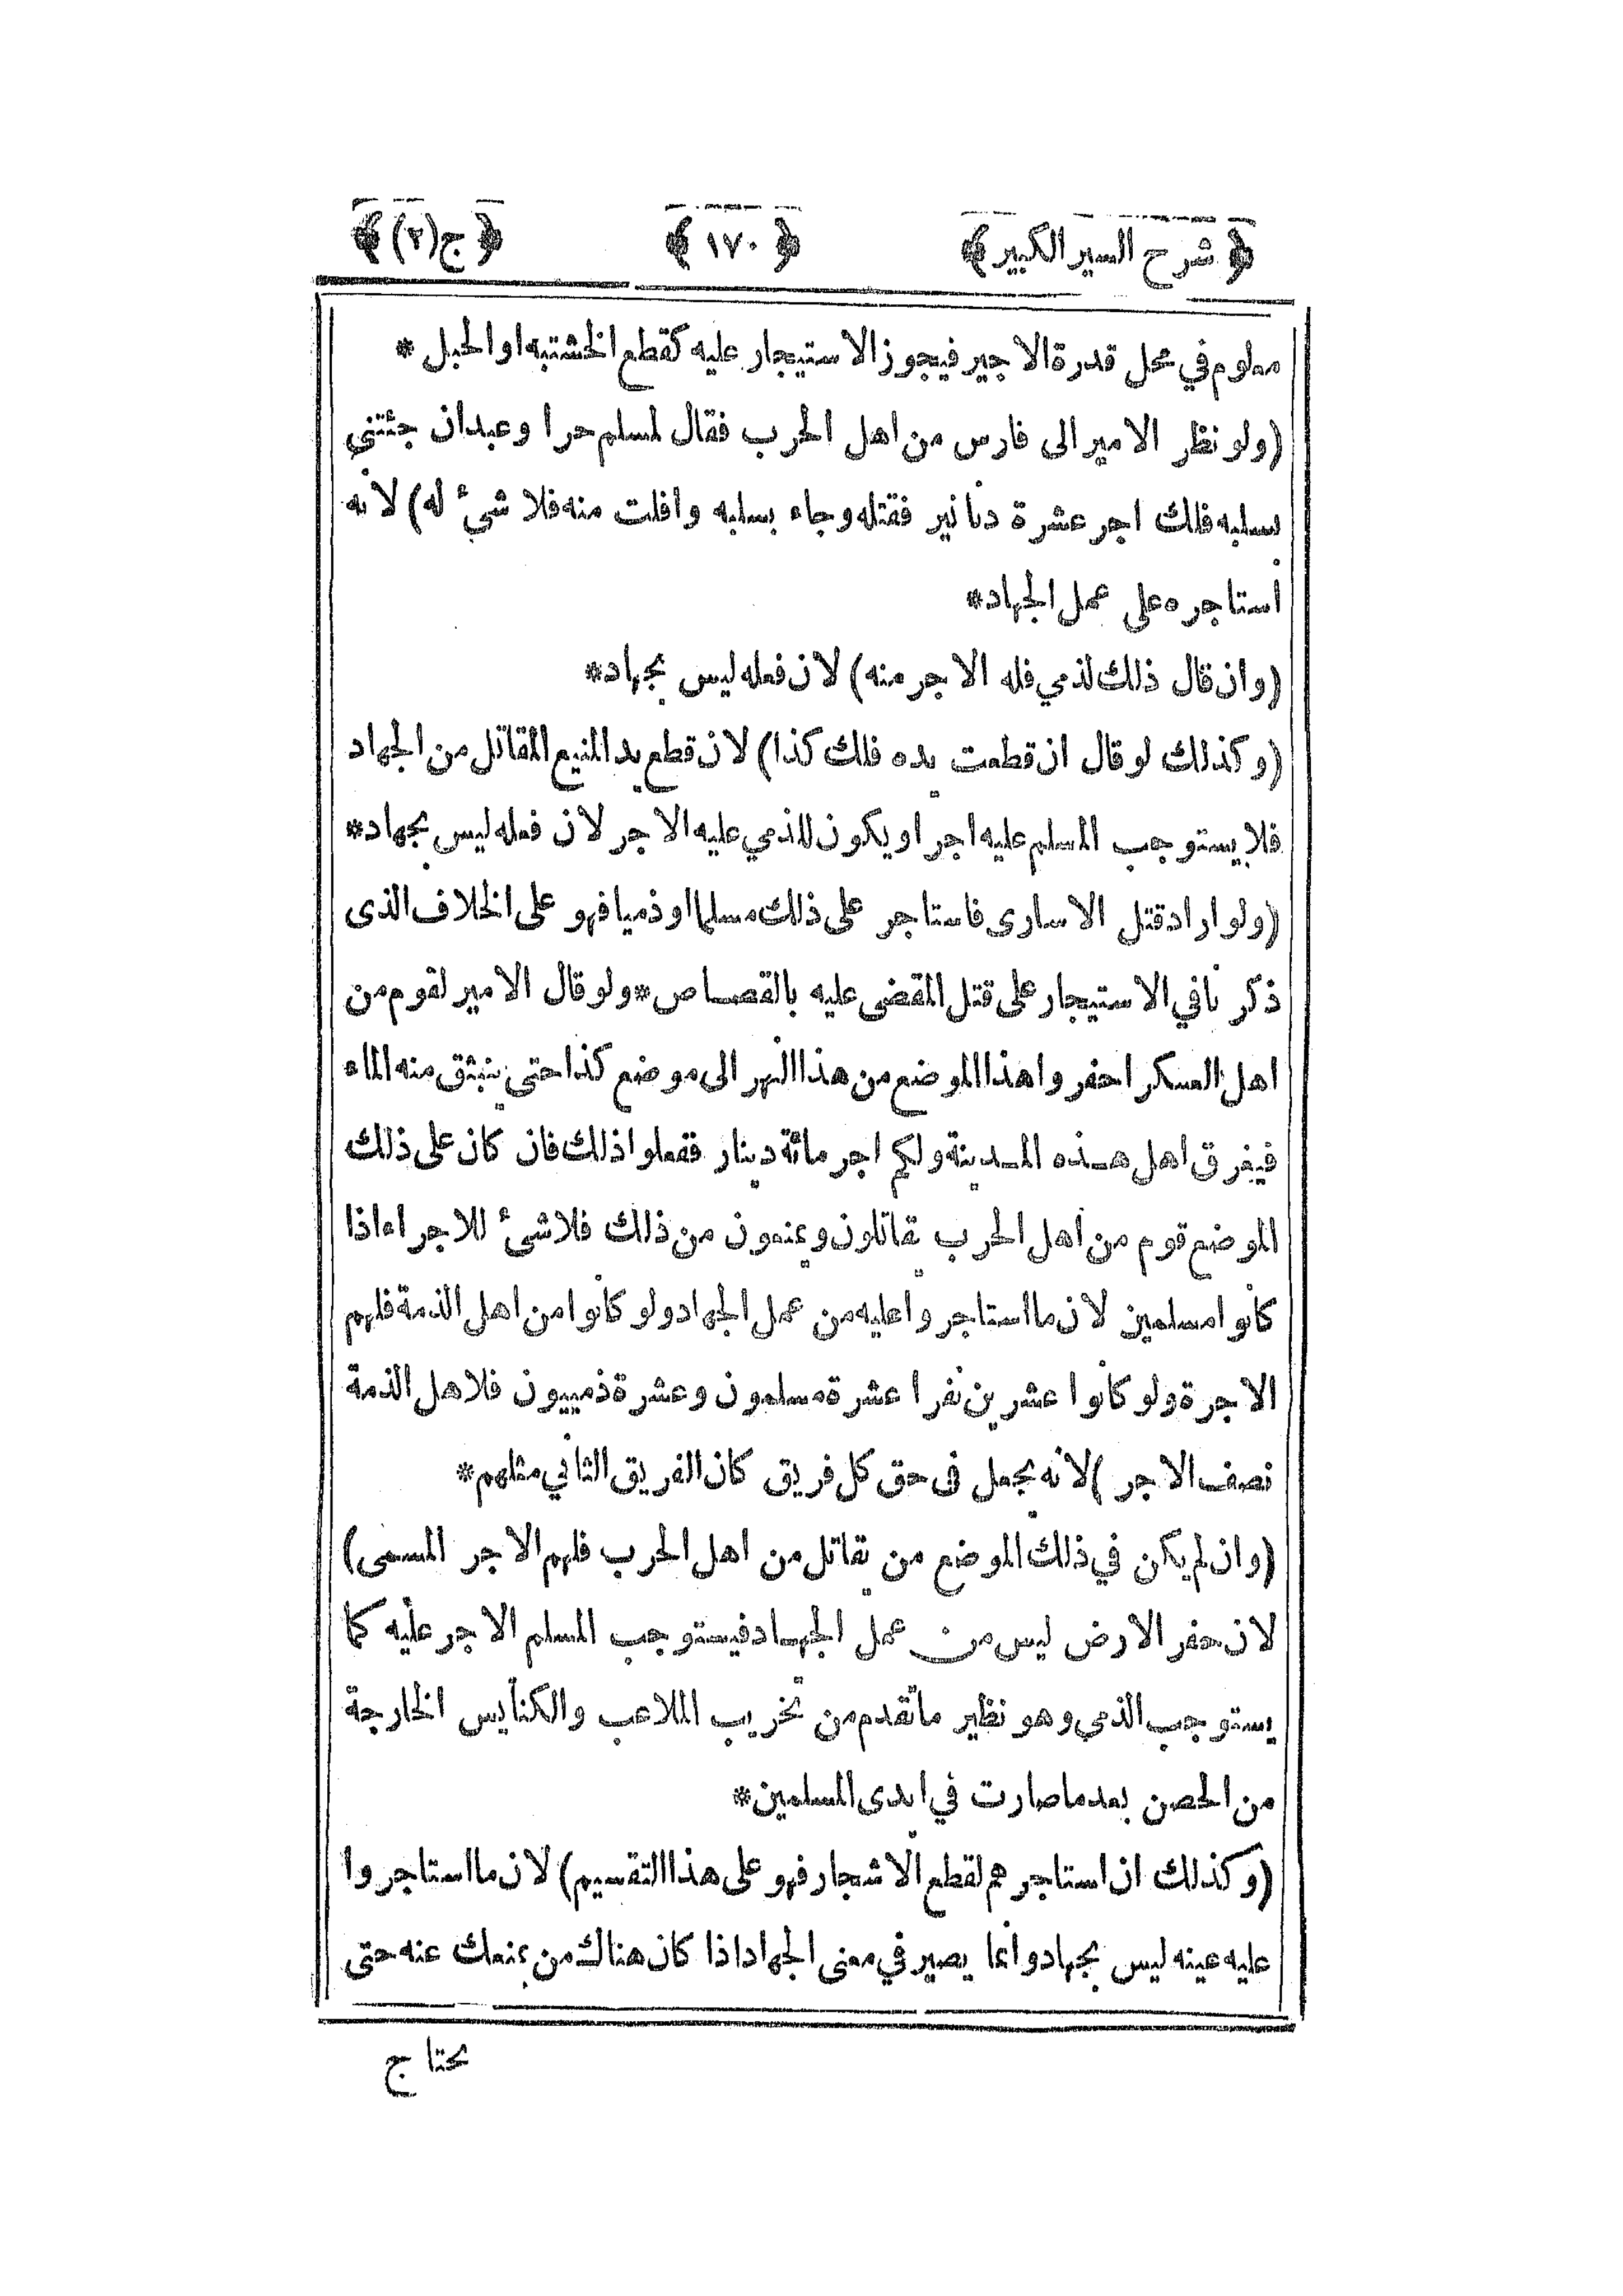 ﴿ شرح السير الكبير ﴾ ﴿ ١٧٠ ﴾ ﴿ ج (٢) ﴾
معلوم في محل قدرة الاجير فيجوز الاستيجار عليه كقطع الخشبة او الحبل *
(ولو نظر الامير الى فارس من اهل الحرب فقال لمسلم حر او عبد ان جئتني
بسلبه فلك اجر عشرة دنانير فقتله وجاء بسلبه وافلت منه فلا شيء له) لانه
استاجره على عمل الجهاد*
(وان قال ذلك لذمي فله الاجر منه) لان فعله ليس بجهاد*
(وكذلك لو قال ان قطعت يده فلك كذا) لان قطع يد المنيع المقاتل من الجهاد
فلا يستوجب المسلم عليه اجرا ويكون للذمي عليه الاجر لان فعله ليس بجهاد*
(ولو اراد قتل الاسارى فاستاجر على ذلك مسلما او ذميا فهو على الخلاف الذى
ذكرنا في الاستيجار على قتل المقضى عليه بالقصاص*ولو قال الامير لقوم من
اهل العسكر احفروا هذا الموضع من هذا النهر الى موضع كذا حتى ينبثق منه الماء
فيغرق اهل هذه المدينة ولكم اجر مائة دينار ففعلوا ذلك فان كان على ذلك
الموضع قوم من اهل الحرب يقاتلون ويمنعون من ذلك فلا شئ للاجراء اذا
كانوا مسلمين لان ما استاجروا عليه من عمل الجهاد ولو كانوا من اهل الذمة فلهم
الاجرة ولو كانوا عشرين نفرا عشرة مسلمون وعشرة ذميون فلاهل الذمة
نصف الاجر )لانه يجعل فى حق كل فريق كان الفريق الثاني مثلهم*
(وان لم يكن في ذلك الموضع من يقاتل من اهل الحرب فلهم الاجر المسمى)
لان حفر الارض ليس من عمل الجهاد فيستوجب المسلم الاجر عليه كما
يستوجب الذمي وهو نظير ما تقدم من تخريب الملاعب والكنايس الخارجة
من الحصن بعد ما صارت في ايدى المسلمين*
(وكذلك ان استاجرهم لقطع الاشجار فهو على هذا التقسيم) لان ما استاجروا
عليه عينه ليس بجهاد وانما يصير في معنى الجهاد اذا كان هناك من يمنعك عنه حتى
يحتاج